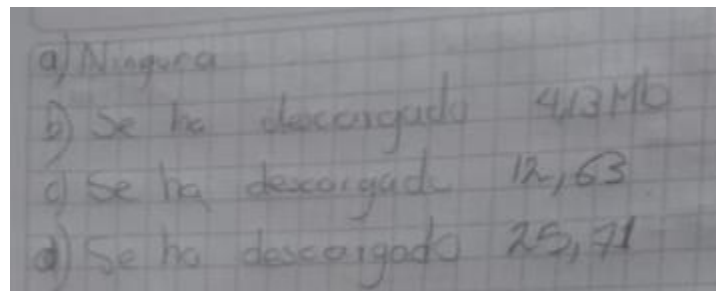 a) Ninguna
b) Se ha descargado 4,13 Mb
c) Se ha descargado 12,63
d) Se ha descargado 25,71